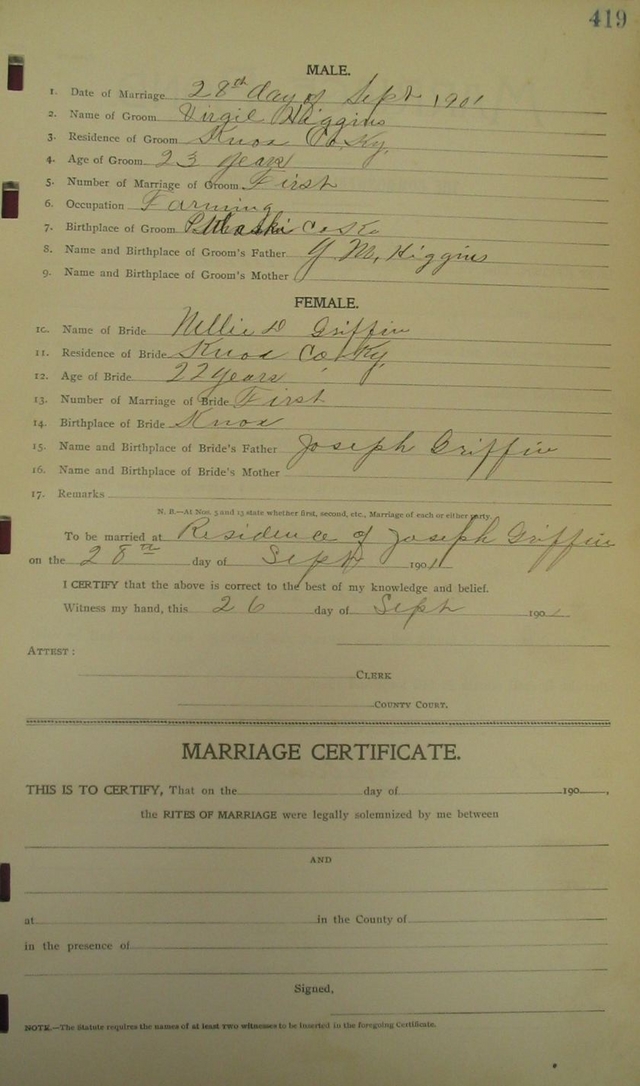 419
MALE.
1. Date of Marriage 28th day of Sept 1901
2. Name of Groom Virgil Higgins
3. Residence of Groom Knox Co. Ky.
4. Age of Groom 23 years
5. Number of Marriage of Groom First
6. Occupation Farming
7. Birthplace of Groom Pulaski Co
8. Name and Birthplace of Groom's Father G M, Higgins
9. Name and Birthplace of Groom's Mother
FEMALE.
10. Name of Bride Nellie D Griffin
11. Residence of Bride Knox Co Ky.
12. Age of Bride 22 years
13. Number of Marriage of Bride First
14. Birthplace of Bride Knox
15. Name and Birthplace of Bride's Father Joseph Griffin
16. Name and Birthplace of Bride's Mother
17. Remarks
N. B.—At Nos. 5 and 13 state whether first, second, etc., Marriage of each or either party.
To be married at Residence of Joseph Griffin
on the 28th day of Sept 1901
I CERTIFY that the above is correct to the best of my knowledge and belief.
Witness my hand, this 26 day of Sept 1901
ATTEST:
CLERK
COUNTY COURT.
MARRIAGE CERTIFICATE.
THIS IS TO CERTIFY, That on the day of 190 ,
the RITES OF MARRIAGE were legally solemnized by me between
AND
at in the County of
in the presence of
Signed,
NOTE.—The Statute requires the names of at least two witnesses to be inserted in the foregoing Certificate.